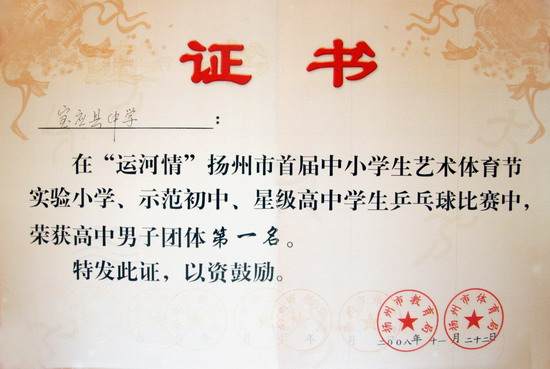 证书
宝应县中学：
在“运河情”扬州市首届中小学生艺术体育节
实验小学、示范初中、星级高中学生乒乓球比赛中，
荣获高中男子团体第一名。
特发此证，以资鼓励。
扬州市教育局
扬州市体育局
二〇〇八年十一月二十二日